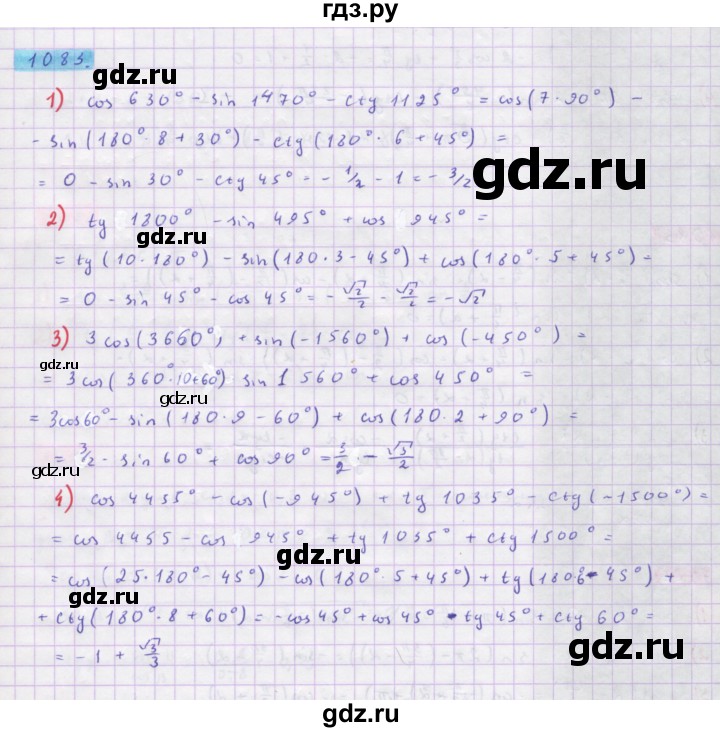 гдз.ру
1083.
gdz.ru
1) cos 630° - sin 1470° - ctg 1125° = cos(7·90°) -
- sin(180°·8 + 30°) - ctg(180°·6 + 45°) =
gdz.ru
= 0 - sin 30° - ctg 45° = - 1/2 - 1 = - 3/2
2) tg 1800° - sin 495° + cos 945° =
gdz.ru
= tg(10·180°) - sin(180·3 - 45°) + cos(180°·5 + 45°) =
= 0 - sin 45° - cos 45° = - √2/2 - √2/2 = - √2
gdz.ru
3) 3cos(3660°) + sin(-1560°) + cos(-450°) =
gdz.ru
= 3cos(360°·10+60°) sin 1560° + cos 450° =
gdz.ru
= 3cos60° - sin(180·9 - 60°) + cos(180·2 + 90°) =
gdz.ru
= 3/2 - sin 60° + cos 90° = 3/2 - √3/2
4) cos 4455° - cos(-945°) + tg 1035° - ctg(-1500°) =
gdz.ru
= cos 4455 - cos 945° + tg 1035° + ctg 1500° =
gdz.ru
= cos(25·180° - 45°) - cos(180°·5 + 45°) + tg(180·6 - 45°) +
+ ctg(180°·8 + 60°) = - cos 45° + cos 45° - tg 45° + ctg 60° =
gdz.ru
= - 1 + √3/3
gdz.ru
gdz.ru